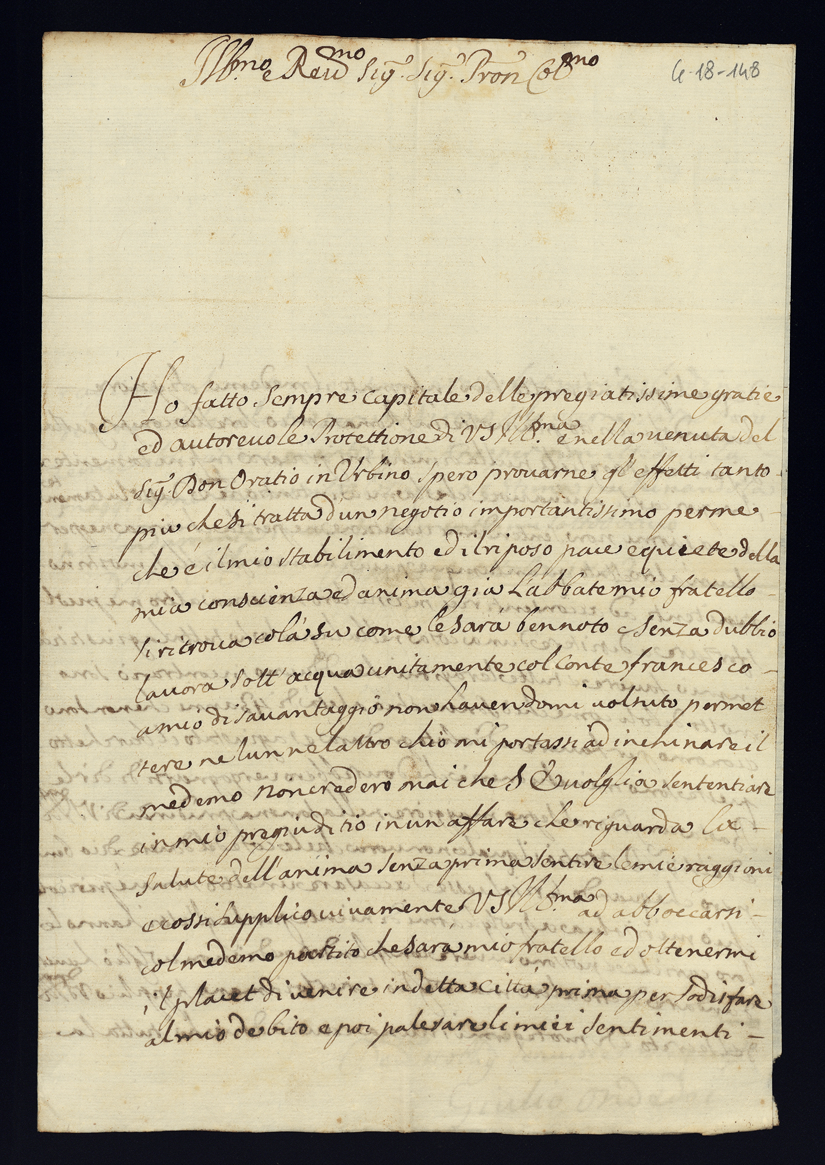 Ill.mo e Reu.mo Sig.r Sig.r Pron Col.mo
4-18-148
Ho fatto sempre capitale delle pregiatissime gratie
ed autoreuole Protettione di VS Ill.ma e nella uenuta del
Sig.r Don Oratio in Urbino spero prouarne gl'effetti tanto
più che si tratta d'un negotio importantissimo per me
che è il mio stabilimento ed il riposo pace e quiete della
mia conscienza ed anima già L'abbate mio fratello
si ritroua colà su come le sarà ben noto e senza dubbio
lauora sott'acqua unitamente col Conte francesco
a mio disauantaggio non hauendomi uolsuto permet
tere ne l'un ne l'altro ch'io mi portassi ad inchinare il
medemo non crederò mai che S E uolglia sententiare
in mio pregiuditio in un affare che riguarda la
salute dell'anima senza prima sentire le mie raggioni
e cossi supplico uiuamente VS Ill.ma ad abboccarsi
col medemo partito che sarà mio fratello ed ottenermi
il placet di uenire in detta Città prima per sodisfare
al mio debito e poi palesare li miei sentimenti